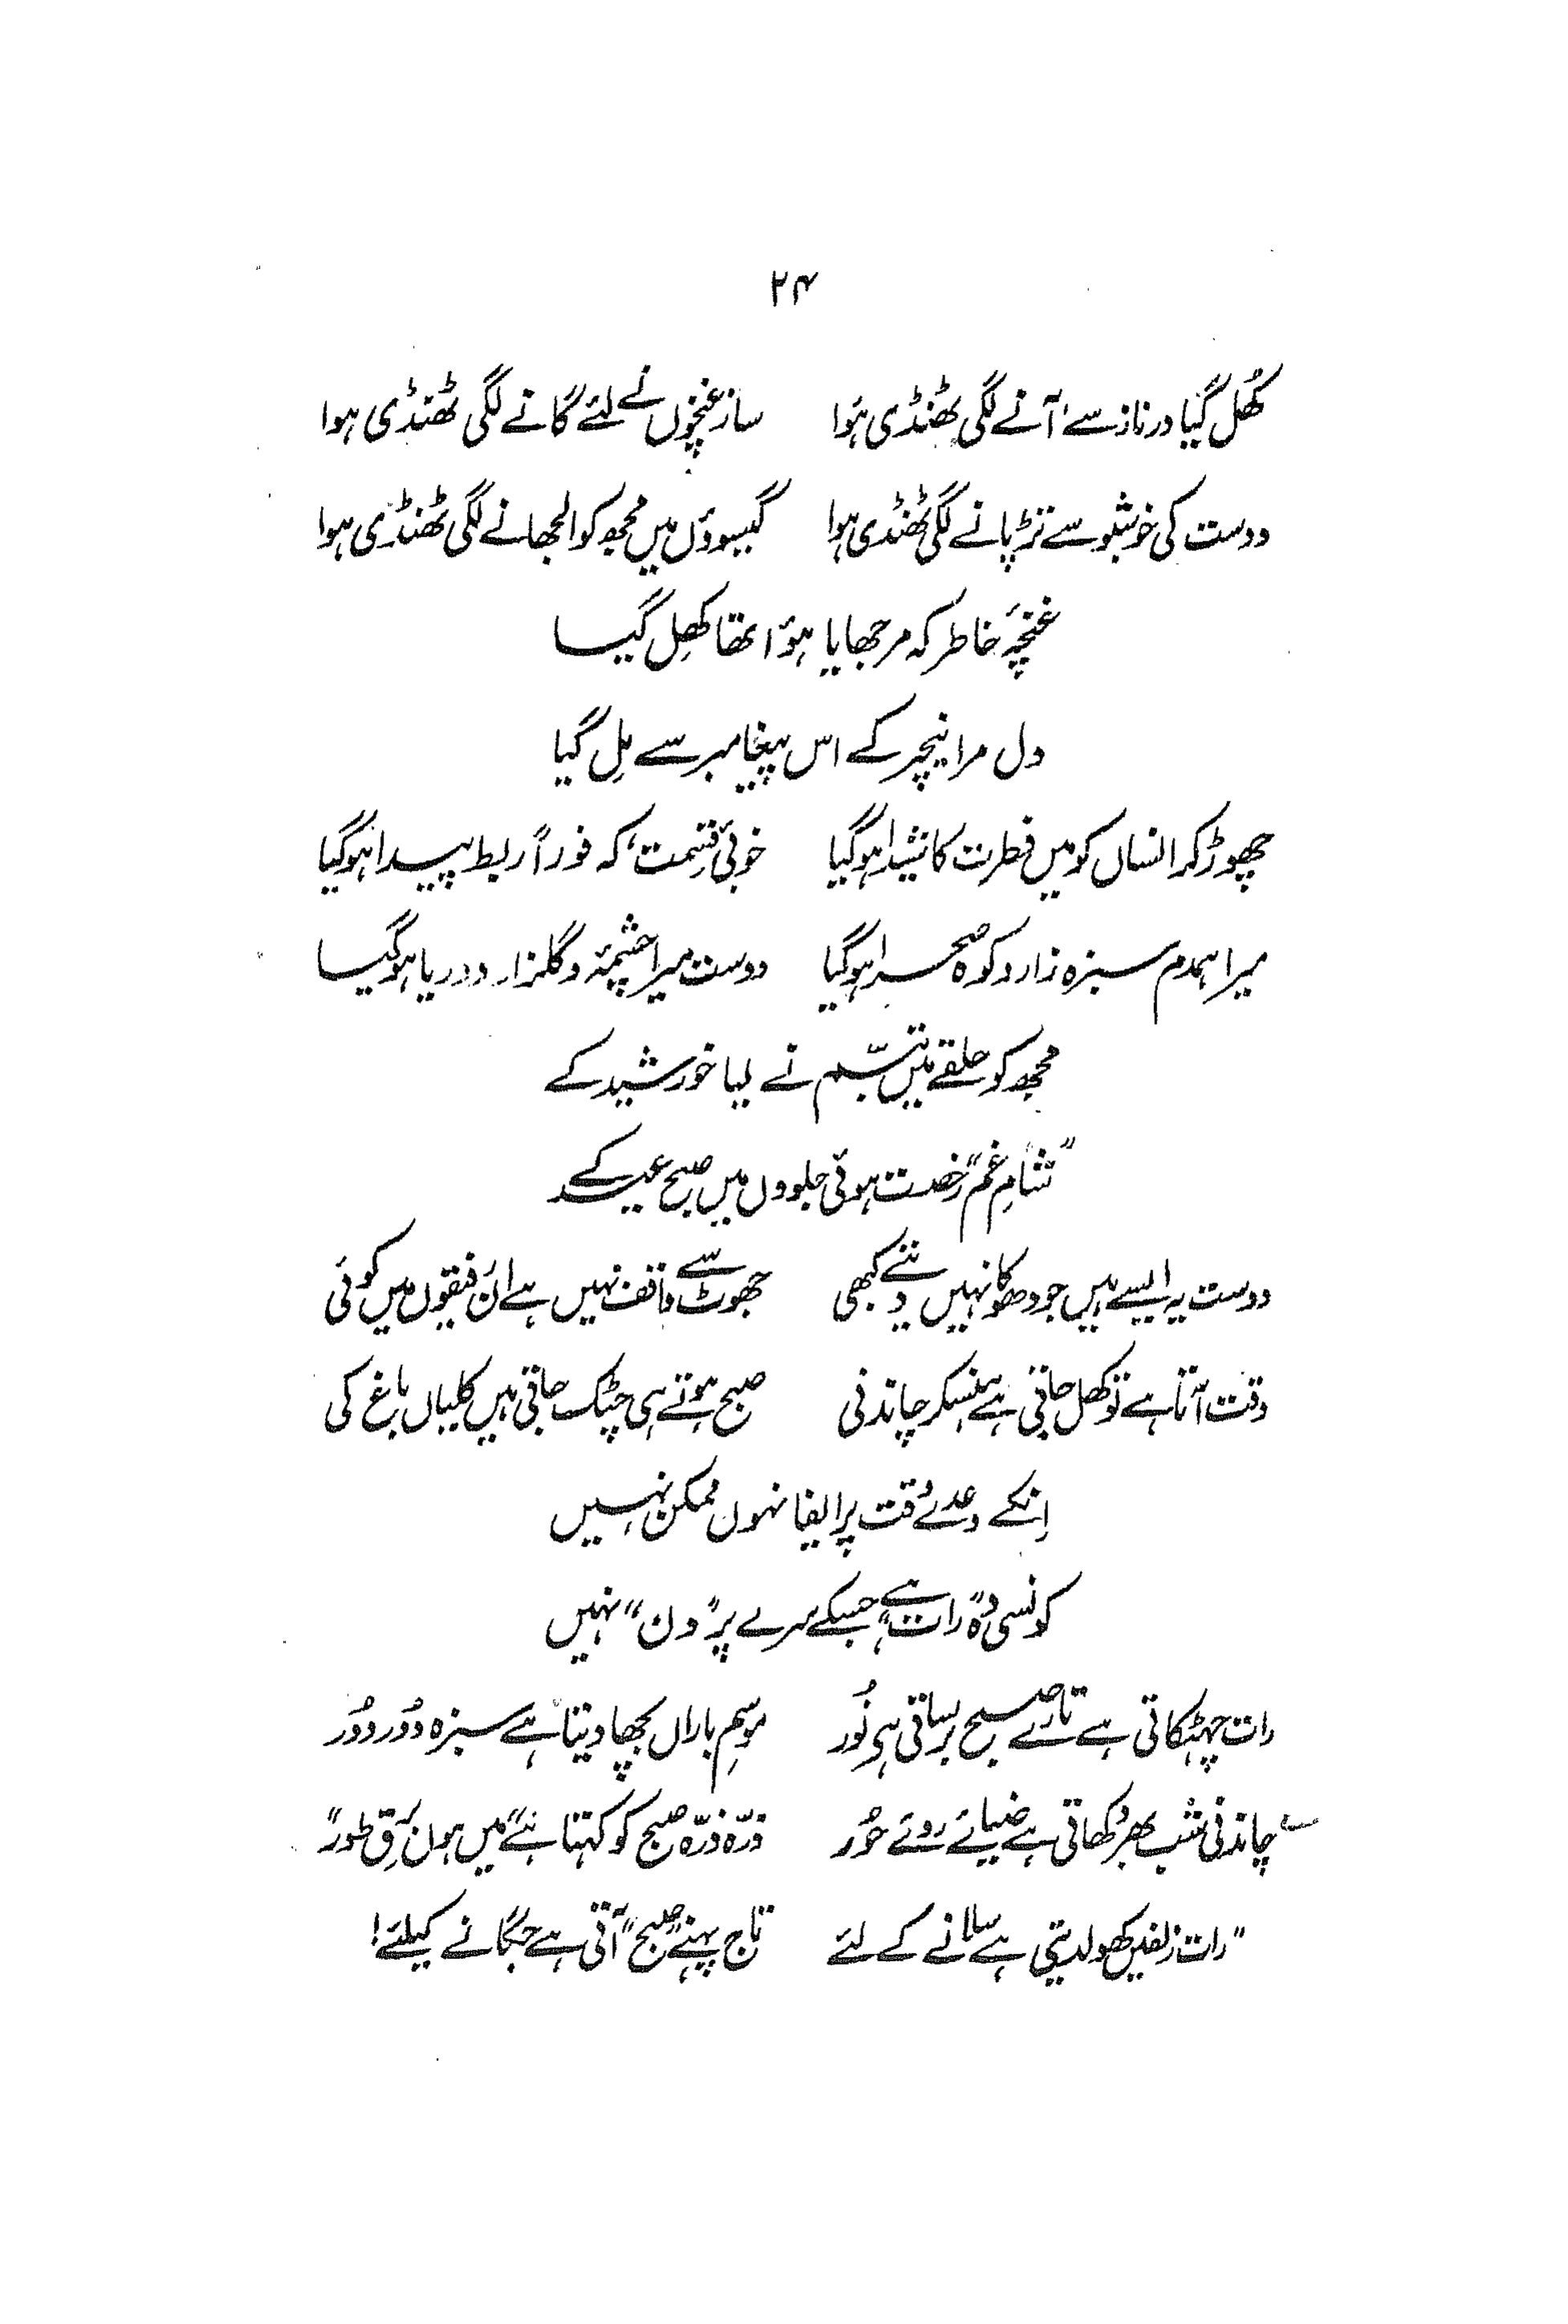 ۲۴
کھُل گیا در ناز سے، آنے لگی ٹھنڈی ہَوا ساز غنچوں نے لئے گانے لگی ٹھنڈی ہوا
دوست کی خوشبو سے تڑپانے لگی ٹھنڈی ہوا گیسوؤں میں مجھ کو الجھانے لگی ٹھنڈی ہوا
غنچۂ خاطر کہ مرجھایا ہؤا تھا کھِل گیا
دل مرا نیچر کے اس پیغامبر سے مِل گیا
چھوڑ کر انساں کو میں فطرت کا شیدا ہوگیا خوبیٔ قسِمت، کہ فوراً ربط پیدا ہوگیا
میرا ہمدم سبزہ زار و کوہ صحرا ہوگیا دوست میرا چشمۂ و گلزار و دریا ہوگیا
مجھ کو حلقے میں تبسّم نے لیا خورشید کے
"شامِ غم" رخصت ہوئی جلووں میں صبح عید کے
دوست یہ ایسے ہیں جو دھوکا نہیں دیتے کبھی جھوٹ سے واقف نہیں ہے ان رفیقوں میں کوئی
وقت آتا ہے تو کھل جاتی ہے ہنسکر چاندنی صبح ہوتے ہی چٹک جاتی ہیں کلیاں باغ کی
اِنکے وعدے وقت پر ایفا نہوں ممکن نہیں
کونسی وہ "رات" ہے جسکے سرے پر "دن" نہیں
رات چھٹکاتی ہے تارے صبح برساتی ہی نُور موسِم باراں بچھا دیتا ہے سبزہ دُور دُور
چاندنی شب بھر دکھاتی ہے ضیائے روئے حُور ذرّہ ذرّہ صبح کو کہتا ہے "میں ہوں برقِ طور"
"رات زلفیں کھولدیتی ہے سلانے کے لئے تاج پہنے "صبح" آتی ہے جگانے کیلئے!